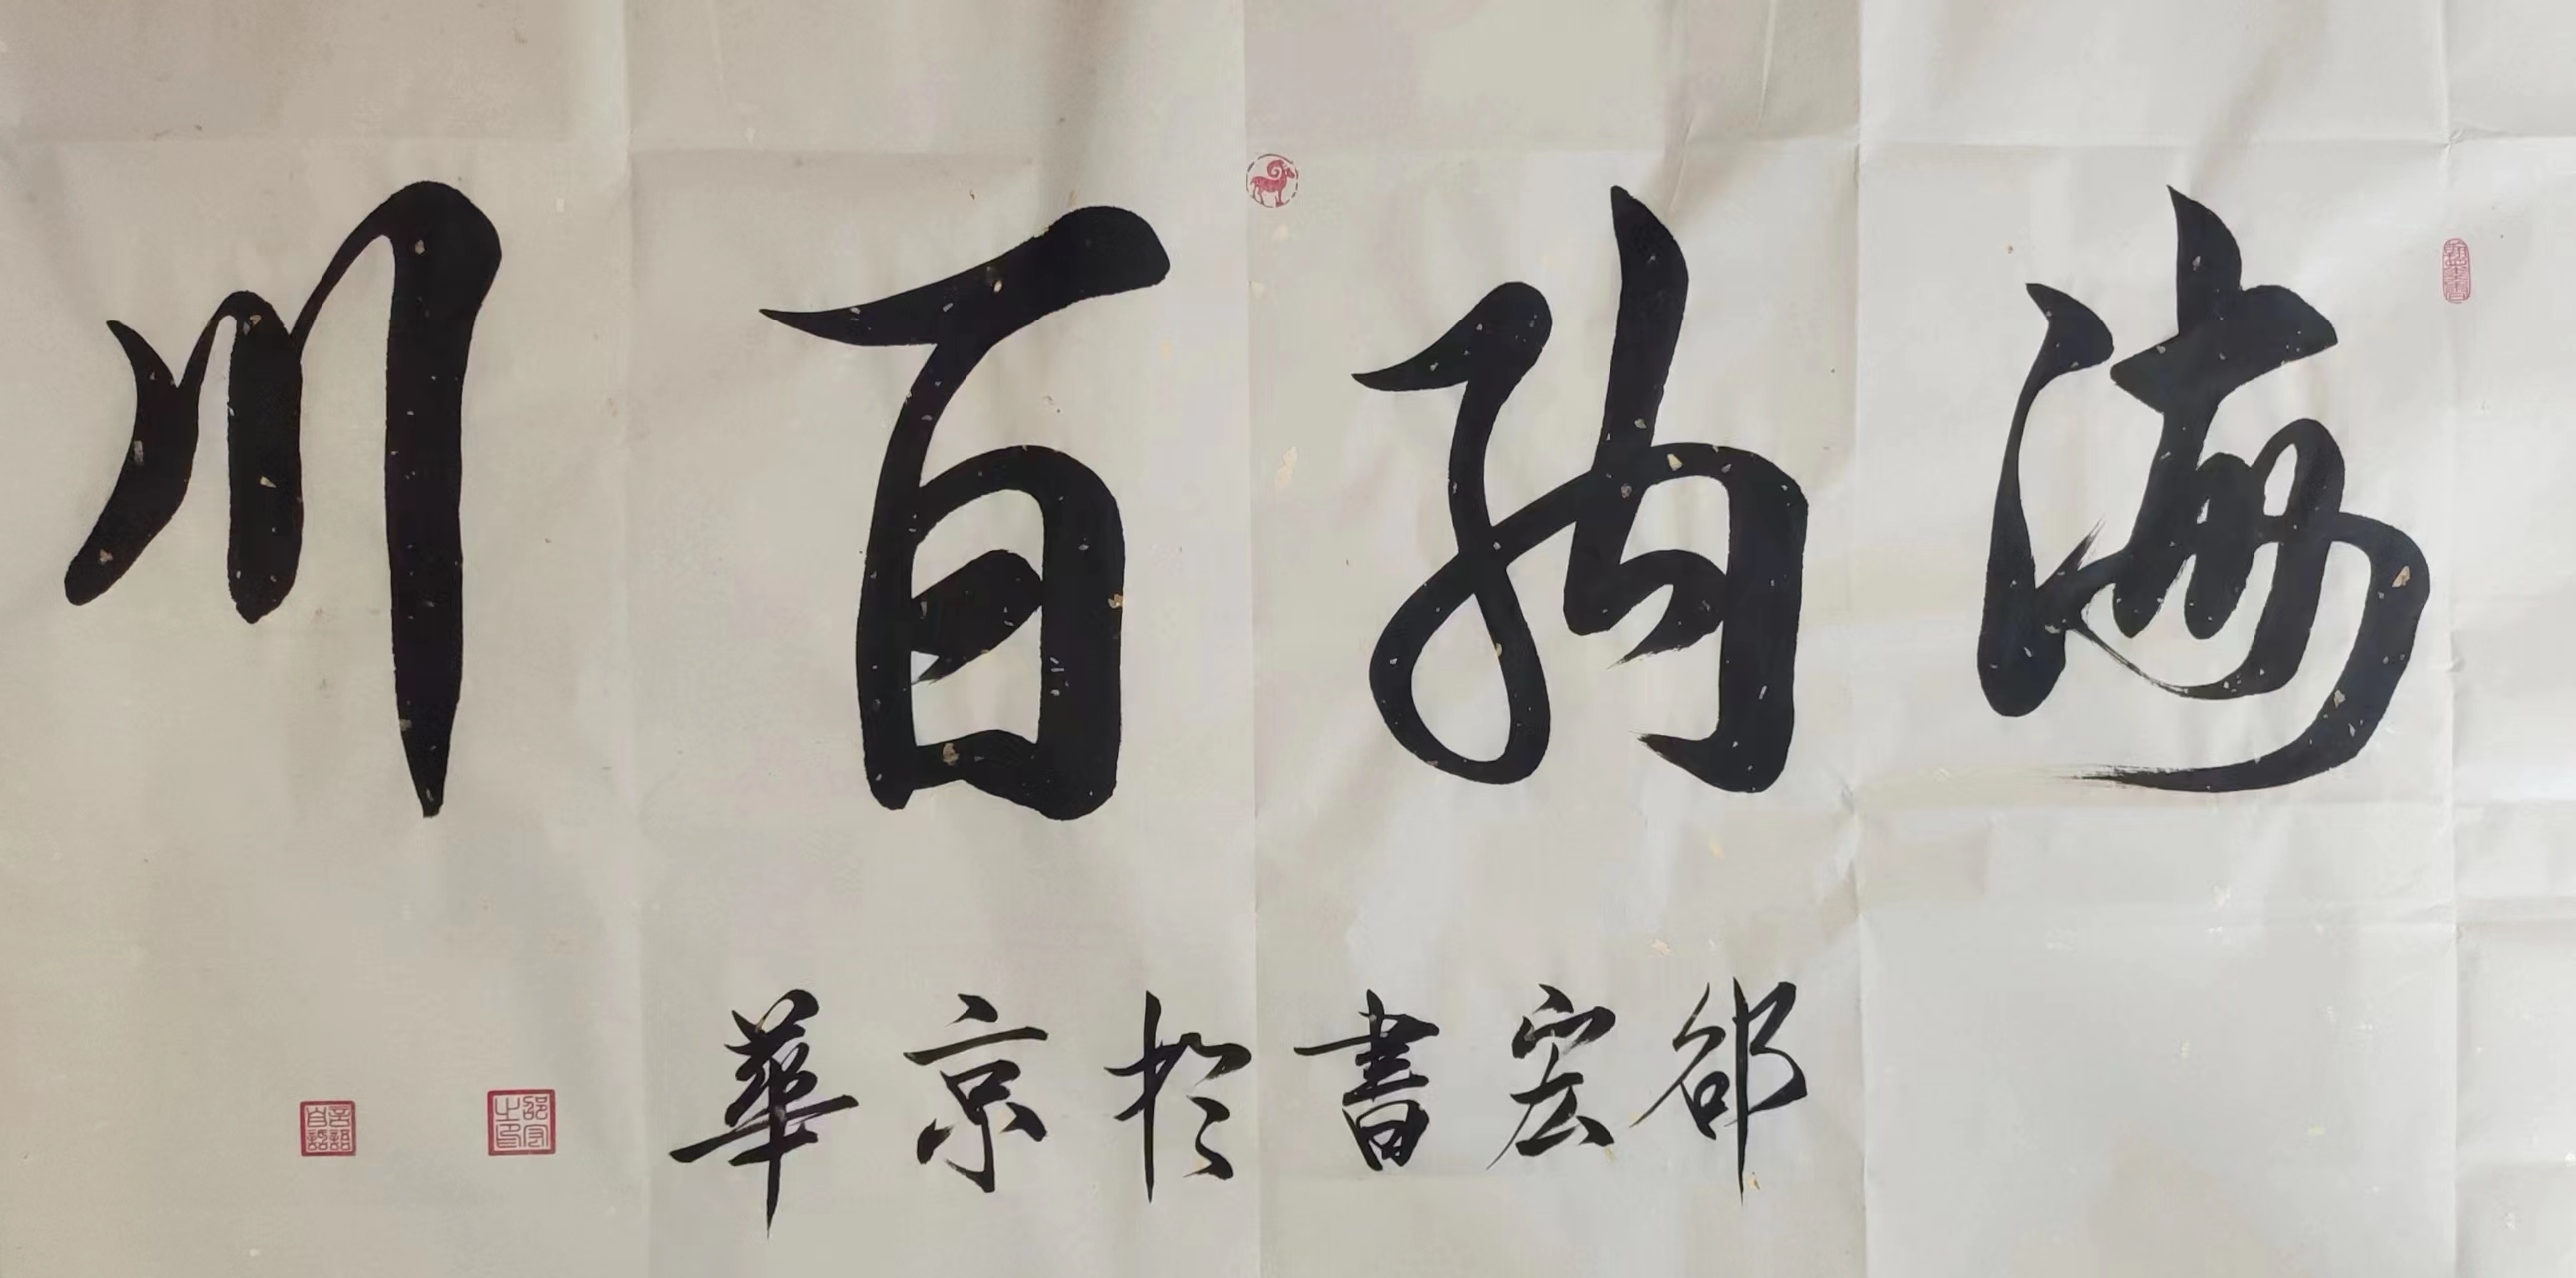 海纳百川
邵宏書於京華